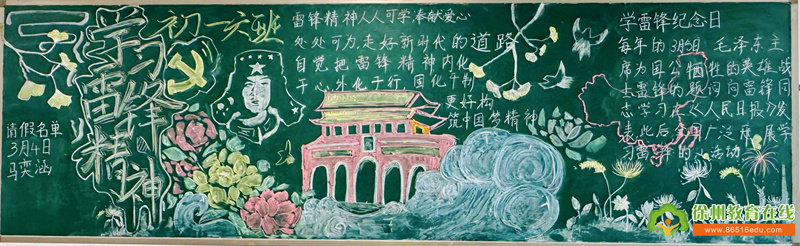 学习
雷锋
精神
初一六班
请假名单
3月4日
马奕涵
雷锋精神人人可学奉献爱心
处处可为,走好新时代的道路
自觉把雷锋精神内化
于心,外化于行,固化于制
更好构
筑中国梦精神
学雷锋纪念日
每年的3月5日 毛泽东主
席为因公牺牲的英雄战
士雷锋的题词向雷锋同
志学习在《人民日报》发
表此后全国广泛开展学
习雷锋的小活动
徐州教育在线
www.86516edu.com